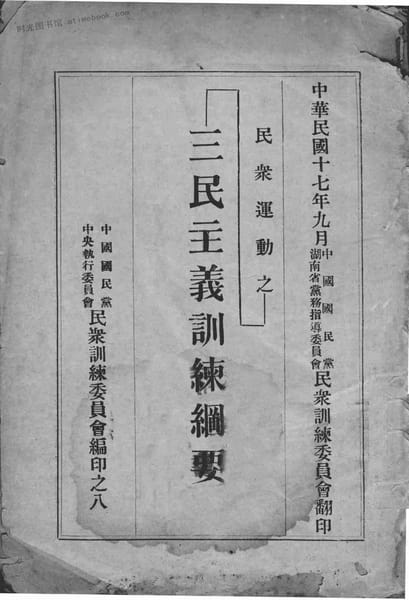 时光图书馆 atimebook.com
中華民國十七年九月中國國民黨湖南省黨務指導委員會民衆訓練委員會翻印
民衆運動之一
三民主義訓練綱要
中國國民黨中央執行委員會民衆訓練委員會編印之八